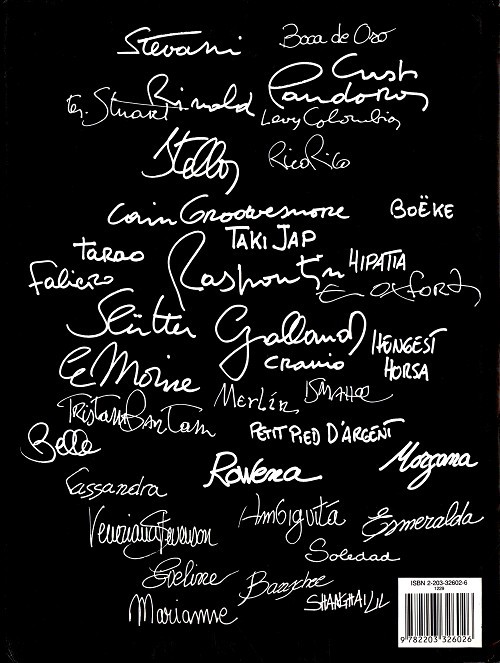 Stevani Boca de Oro
Cush
Stuart Rinald Pandora
Levy Colombia
Stella Rico Rico
Cain Groovesnore BOËKE
TAKI JAP
Tarao Raspoutin HIPATIA
Faliero Oxford
Slütter Galland HENGEST
Le Moine CRANIO HORSA
Merlin ISMAHEL
Tristan Bantam
Belle PETIT PIED D'ARGENT
Rowena Morgana
Cassandra
Ambiguita Esmeralda
Venexiana Stevenson
Soledad
Eveline
SHANGHAI LIL
Marianne
ISBN 2-203-32602-6
1229
9 782203 326026